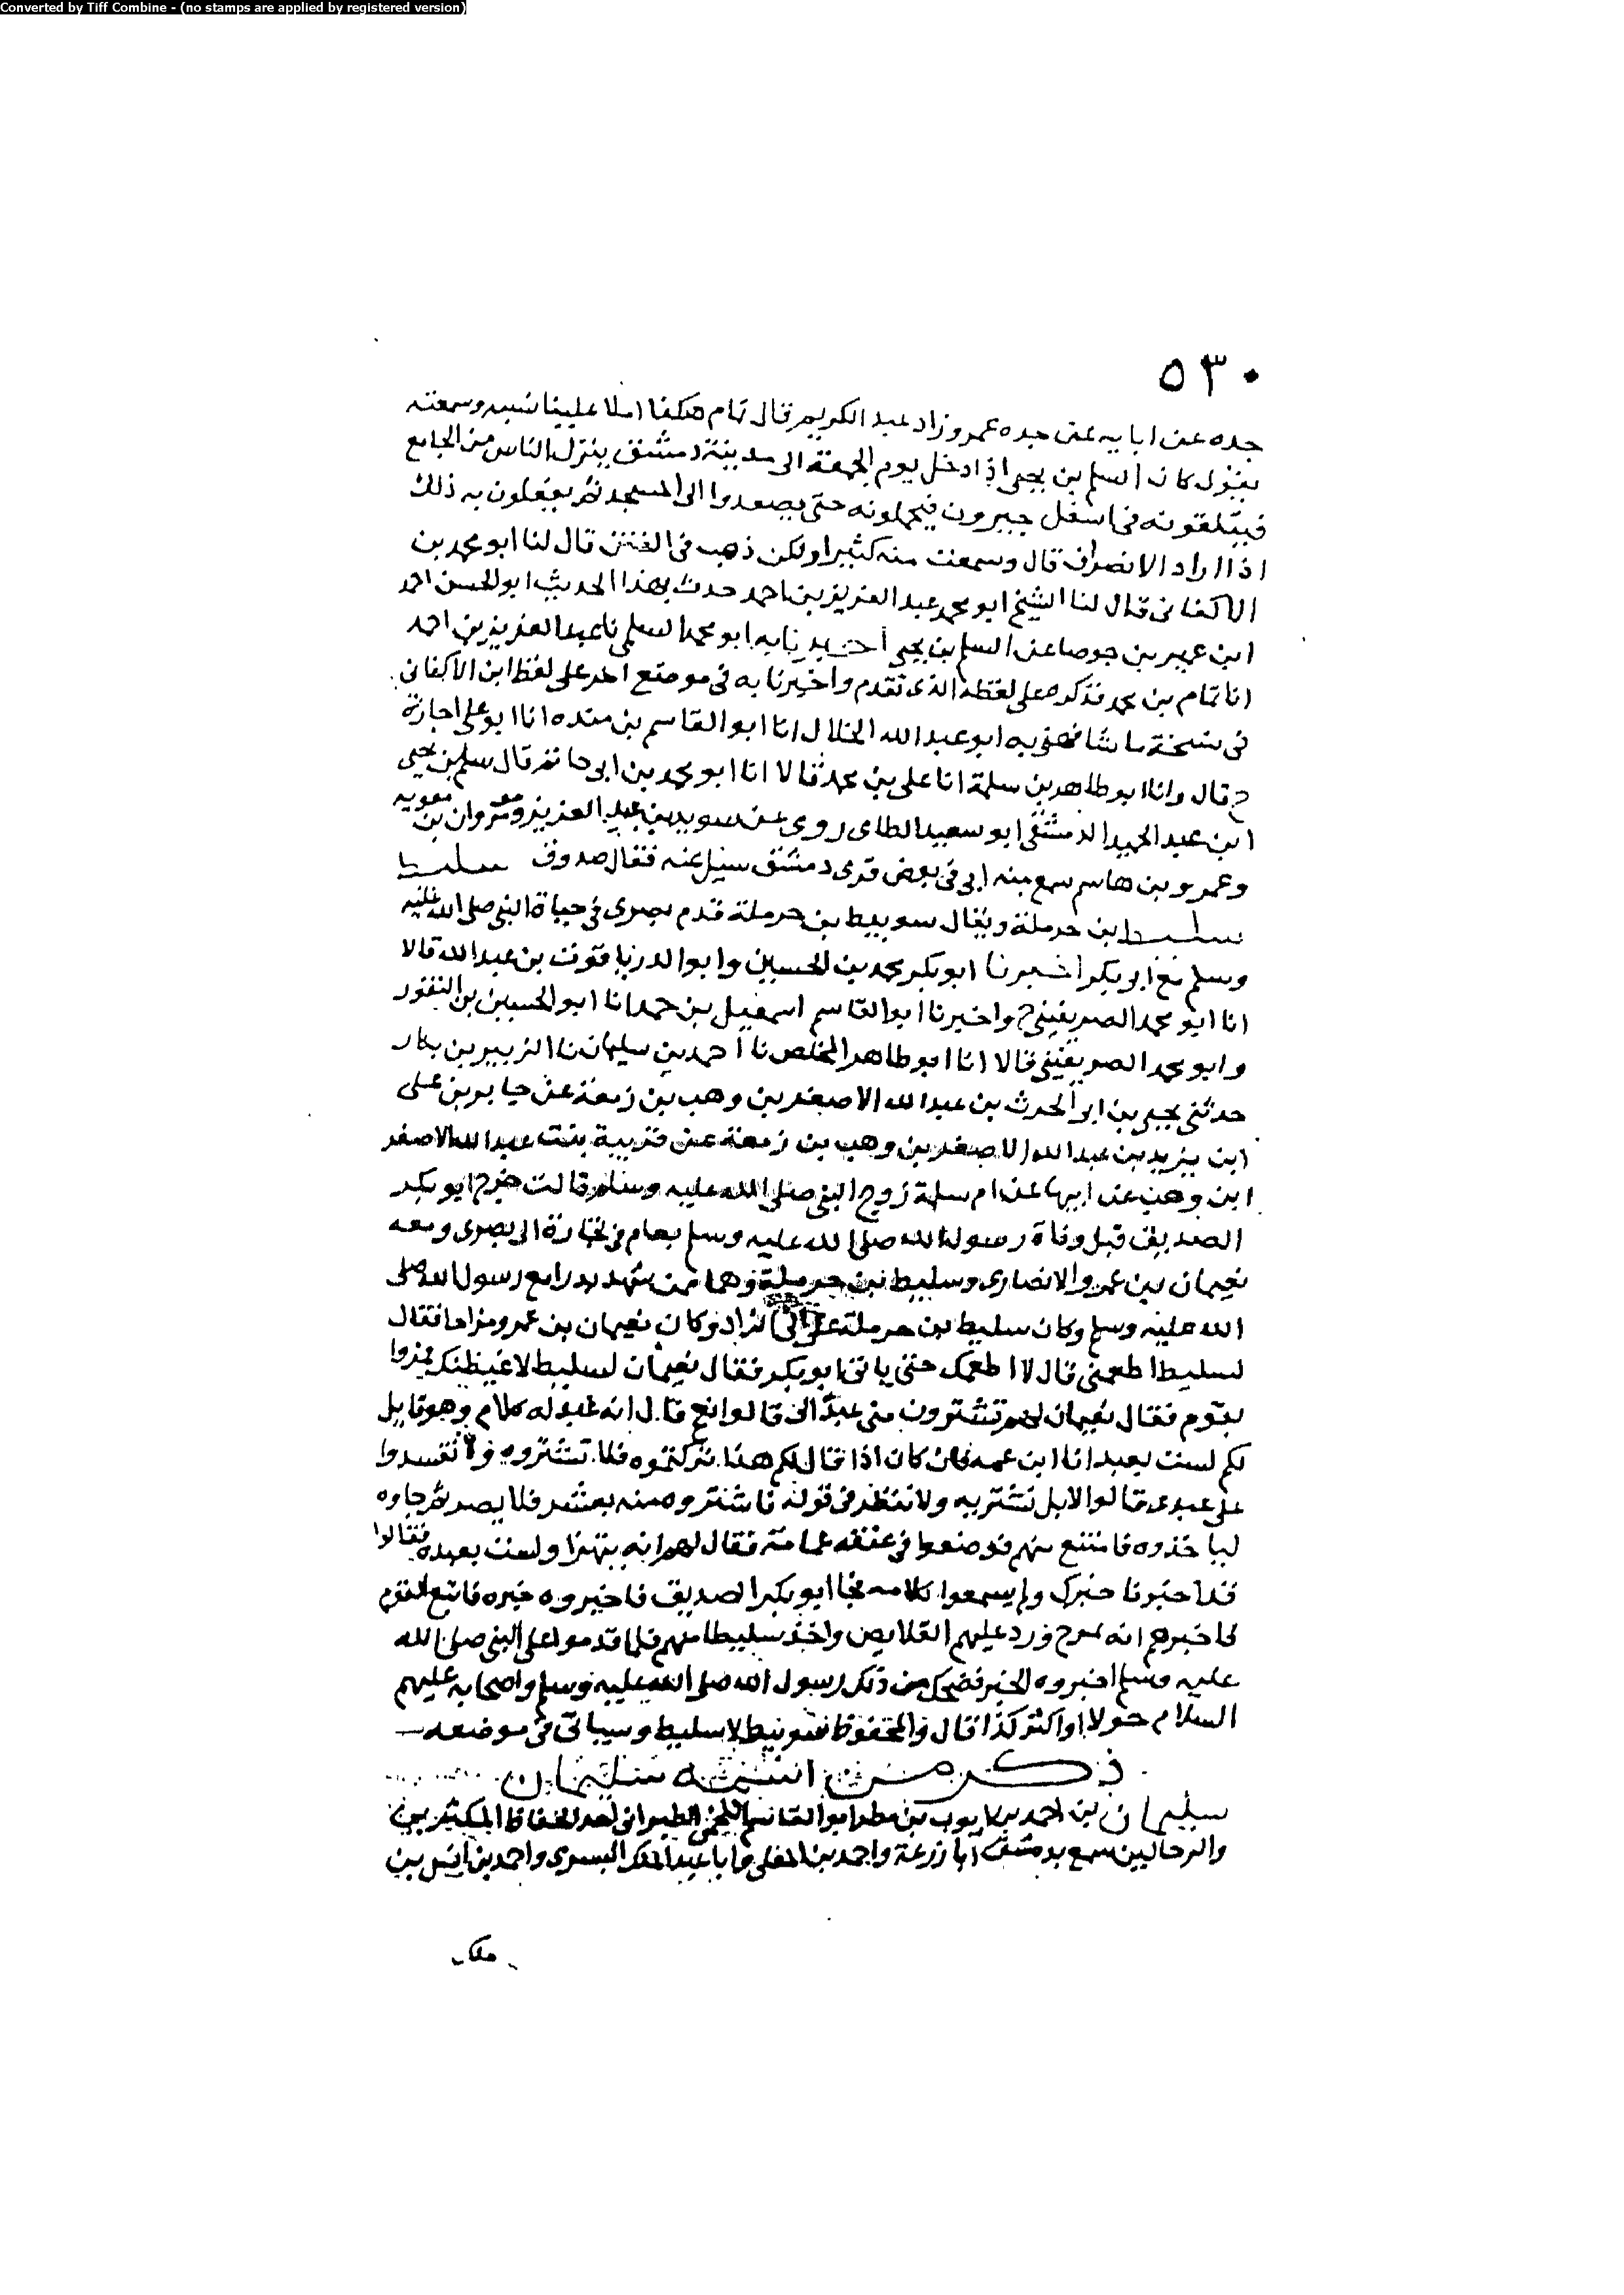 Converted by Tiff Combine - (no stamps are applied by registered version)
٥٣٠
جده عن ابايه عن جده عمرو زاد عبد الكريم قال تمام هكذا املا علينا نسبه وسمعته
يقول كان السلم بن يحيى اذا دخل يوم الجمعة الى مدينة دمشق ينزل الناس من الجامع
فيتلقونه في اسفل جيرون فيحملونه حتى يصعدوا الى المسجد ثم يفعلون به ذلك
اذا اراد الانصراف قال وسمعت منه كثيرا ولكن ذهب في الفتن قال لنا ابو محمد بن
الاكفاني قال لنا الشيخ ابو محمد عبد العزيز بن احمد حدث بهذا الحديث ابو الحسن احمد
ابن عمير بن جوصا عن السلم بن يحيى اخبرنا به ابو محمد السلمي نا عبد العزيز بن احمد
انا تمام بن محمد فذكره على لفظه الذي تقدم واخبرنا به في موضع اخر على لفظ ابن الاكفاني
في نسخة ما شافهني به ابو عبد الله الخلال انا ابو القاسم بن منده انا ابو علي اجازة
ح قال وانا ابو طاهر بن سلمة انا علي بن محمد قالا انا ابو محمد بن ابي حاتم قال سلم بن يحيى
ابن عبد الحميد الدمشقي ابو سعيد الطاي روى عن سويد بن عبد العزيز ومروان بن معويه
وعمرو بن هاسم سمع منه ابي في بعض قرى دمشق سيل عنه فقال صدوق سليط
سليط بن حرملة ويقال سويبط بن حرملة قدم بصرى في حياة النبي صلى الله عليه
وسلم مع ابو بكر اخبرنا ابو بكر محمد بن الحسين وابو الدر ياقوت بن عبد الله قالا
انا ابو محمد الصريفيني ح واخبرنا ابو القاسم اسمعيل بن حمد انا ابو الحسين بن النقور
وابو محمد الصريفيني قالا انا ابو طاهر المخلص نا احمد بن سليمان نا الزبير بن بكار
حدثني يحيى بن ابو الحرث بن عبد الله الاصغر بن وهب بن زمعة عن جابر بن علي
ابن يزيد بن عبد الله الاصغر بن وهب بن زمعة عن قريبة بنت عبد الله الاصغر
ابن وهب عن ابيها عن ام سلمة زوج النبي صلى الله عليه وسلم قالت خرج ابو بكر
الصديق قبل وفاة رسول الله صلى الله عليه وسلم بعام في تجارة الى بصرى ومعه
نعيمان بن عمرو الانصاري وسليط بن حرملة وهما ممن شهد بدرا مع رسول الله صلى
الله عليه وسلم وكان سليط بن حرملة على الزاد وكان نعيمان بن عمرو مزاحا فقال
لسليط اطعمني قال لا اطعمك حتى ياتي ابو بكر فقال نعيمان لسليط لاغيظنك فمروا
بقوم فقال نعيمان لهم تشترون مني عبدا لي قالوا نعم قال انه عبد له كلام وهو قايل
لكم لست بعبد انا ابن عمه فان كان اذا قال لكم هذا تركتموه فلا تشتروه ولا تفسدوا
علي عبدي قالوا لا بل نشتريه ولا ننظر في قوله فاشتروه منه بعشر قلايص ثم جاوه
لياخذوه فامتنع منهم فوضعوا في عنقه عمامة فقال لهم انه يتهزا ولست بعبده فقالوا
قد اخبرنا خبرك ولم يسمعوا كلامه فجا ابو بكر الصديق فاخبروه خبره فاتبع القوم
فاخبرهم انه يمزح ورد عليهم القلايص واخذ سليطا منهم فلما قدموا على النبي صلى الله
عليه وسلم اخبروه الخبر فضحك من ذلك رسول الله صلى الله عليه وسلم واصحابه عليهم
السلام حولا او اكثر كذا قال والمحفوظ سويبط لا سليط وسياتي في موضعه
ذكر من اسمه سليمان
سليمان بن احمد بن ايوب بن مطر ابو القاسم اللخمي الطبراني احد الحفاظ المكثرين
والرحالين سمع بدمشق ابا زرعة واحمد بن المعلى وابا عبد الملك البسري واحمد بن انس بن
ملك